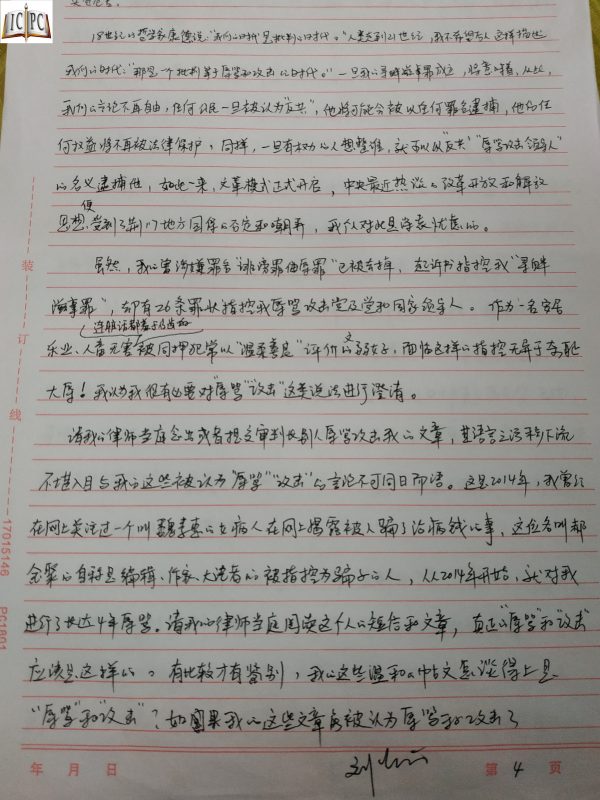 ICPC
18世纪的哲学家康德说:“我们的时代是批判的时代。”人类走到21世纪,我不希望后人这样描述
我们的时代:“那是一个批判等于辱骂和攻击的时代。”一旦我的寻衅滋事罪成立,将意味着,从此,
我们的言论不再自由,任何公民一旦被认为“反共”,他将可能会被以任何罪名逮捕,他的任
何权益将不再被法律保护,同样,一旦有权力的人想整谁,就可以以“反共”“辱骂攻击领导人”
的名义逮捕他,如此一来,文革模式正式开启,中央最近热议的改革开放和解放
思想,便受到了荆门地方国保的否定和嘲弄,我个人对此是深表忧虑的。
虽然,我的涉嫌罪名“诽谤罪侮辱罪”已被去掉,起诉书指控我“寻衅
滋事罪”,却有26条罪状指控我辱骂攻击党及党和国家领导人。作为一名安居
乐业、人畜无害、被同押犯常以“温柔善良”评价的弱女子,面临这样的指控无异于奇耻
大辱!我认为我很有必要对“辱骂”“攻击”这类说法进行澄清。
请我的律师当庭念出或者提交审判长别人辱骂攻击我的文章,其语言之污秽下流
不堪入目与我的这些被认为“辱骂”“攻击”的言论不可同日而语。这是2014年,我曾经
在网上关注过一个叫魏孝惠的女病人在网上揭露被人骗了治病钱的事,这位名叫郝
金聚的自称是编辑、作家、大法者的被指控为骗子的人,从2014年开始,就对我
进行了长达4年辱骂。请我的律师当庭阅读这个人的短信和文章,真正的“辱骂”和“攻击”
应该是这样的。有比较才有鉴别,我的这些温和的帖文怎谈得上是
“辱骂”和“攻击”?如果我的这些文章被认为辱骂和攻击了
装
订
线
17015146
PC1801
年 月 日
第 4 页